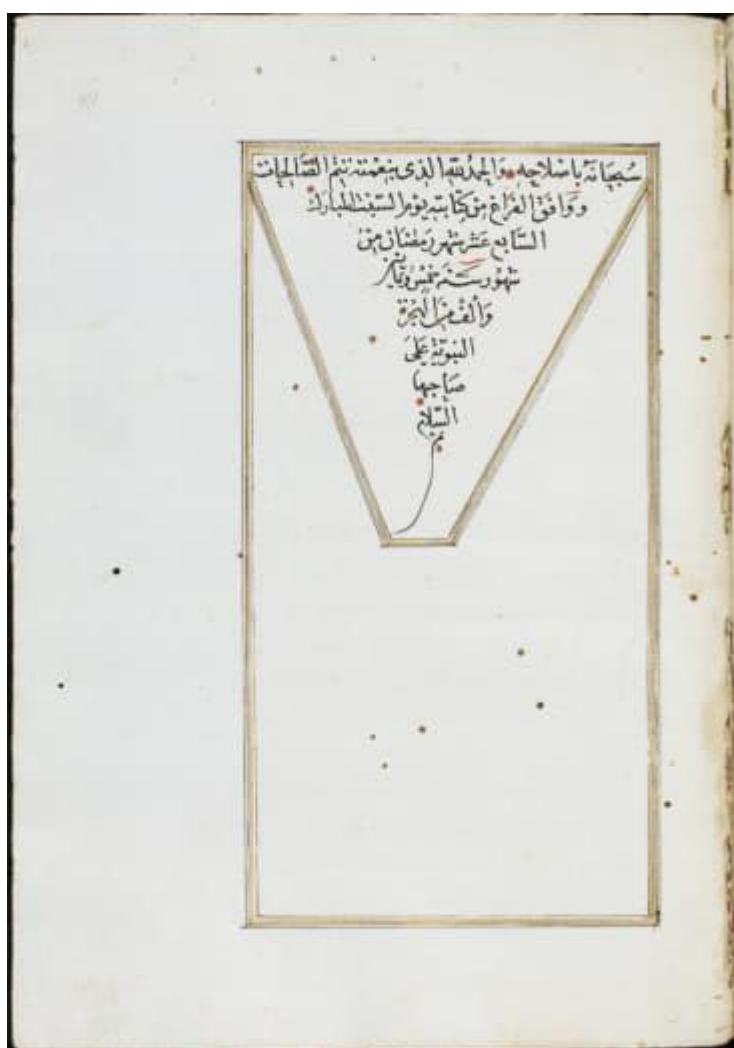 سُبحانه باصلاحِه وَالحمدُ لله الذي بنعمته تتم الصَّالِحات
ووَافق الفراغ من كتابته يوم السَّبت المبارك
السَّابع عشر شهر رمضان مِن
شهور سَنة خمس وثمانين
وَألف من الهجرة
النبوية عَلى
صَاحِبها
السَّلام
تم